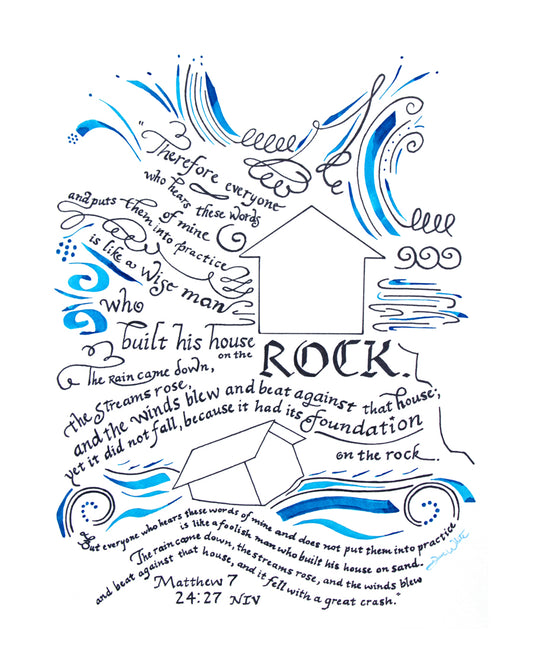 "Therefore everyone
who hears these words
of mine
and puts them into practice
is like a wise man
who
built his house
on the
ROCK.
The rain came down,
the streams rose,
and the winds blew and beat against that house;
yet it did not fall, because it had its foundation
on the rock.
But everyone who hears these words of mine and does not put them into practice
is like a foolish man who built his house on sand.
The rain came down, the streams rose, and the winds blew
and beat against that house, and it fell with a great crash."
Matthew 7
24:27 NIV